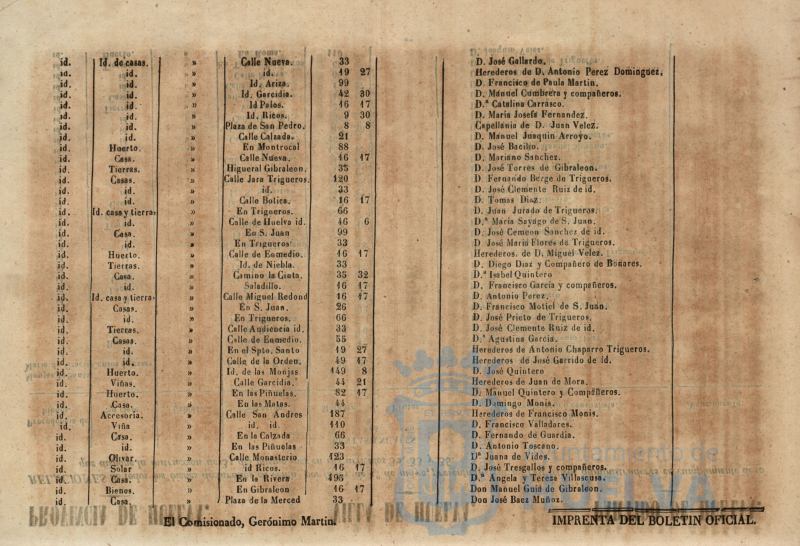 id. Id. de casas. » Calle Nueva. 33 D. José Gallardo.
id. id. » id. 19 27 Herederos de D. Antonio Perez Dominguez.
id. id. » Id. Ariza. 99 D. Francisco de Paula Martin.
id. id. » Id. Garcidia. 42 30 D. Manuel Cumbrera y compañeros.
id. id. » Id Palos. 16 17 D.ª Catalina Carrasco.
id. id. » Id. Ricos. 9 30 D. María Josefa Fernandez.
id. id. » Plaza de San Pedro. 8 8 Capellania de D. Juan Velez.
id. id. » Calle Calzada. 21 D. Manuel Joaquin Arroyo.
id. Huerto. » En Montrocal 88 D. José Bacilio.
id. Casa. » Calle Nueva. 16 17 D. Mariano Sanchez.
id. Tierras. » Higueral Gibraleon. 35 D. José Torres de Gibraleon.
id. Casas. » Calle Jara Trigueros. 120 D. Fernando Berge de Trigueros.
id. id. » id. 33 D. José Clemente Ruiz de id.
id. id. » Calle Botica. 16 17 D. Tomas Diaz.
id. Id. casa y tierra » En Trigueros. 66 D. Juan Jurado de Trigueros.
id. id. » Calle de Huelva id. 46 6 D.ª María Sayago de S. Juan.
id. Casa. » En S. Juan 99 D. José Cemeon Sanchez de id.
id. id. » En Trigueros 33 D José María Flores de Trigueros.
id. Huerto. » Calle de Enmedio. 16 17 Herederos. de D. Miguel Velez.
id. Tierras. » Id. de Niebla. 33 D. Diego Diaz y Compañero de Bonares.
id. Casa. » Camino la Cinta. 35 32 D.ª Isabel Quintero
id. id. » Saladillo. 16 17 D. Francisco García y compañeros.
id. Id. casa y tierra » Calle Miguel Redond 16 17 D. Antonio Perez.
id. Casas. » En S. Juan. 26 D. Francisco Motiel de S. Juan.
id. id. » En Trigueros. 66 D. José Prieto de Trigueros.
id. Tierras. » Calle Audiencia id. 33 D. José Clemente Ruiz de id.
id. Casas. » Calle de Enmedio. 55 D.ª Agustina García.
id. id. » En el Spto. Santo 19 27 Herederos de Antonio Chaparro Trigueros.
id. id. » Calle de la Orden. 49 17 Herederos de José Garrido de id.
id. Huerto. » Id. de las Monjas 149 8 D. José Quintero
id. Viñas. » Calle Garcidia. 44 21 Herederos de Juan de Mora.
id. Huerto. » En las Piñuelas. 82 17 D. Manuel Quintero y Compañeros.
id. Casa. » En las Matas. 44 D. Domingo Monis.
id. Accesoria. » Calle San Andres 187 Herederos de Francisco Monis.
id. Viña » id. id. 110 D. Francisco Valladares.
id. Casa. » En la Calzada 66 D. Fernando de Guardia.
id. id. » En las Piñuelas 33 D. Antonio Toscano.
id. Olivar. » Calle Monasterio 123 Dª Juana de Vides.
id. Solar » id Ricos. 16 17 D. José Tresgallos y compañeros.
id. Casa. » En la Rivera 495 D.ª Angela y Teresa Villascusa.
id. Bienes. » En Gibraleon 16 17 Don Manuel Guid de Gibraleon.
id. Casa. » Plaza de la Merced 33 Don José Baez Muñoz.
El Comisionado, Gerónimo Martin.
IMPRENTA DEL BOLETIN OFICIAL.
Ayuntamiento de
HUELVA